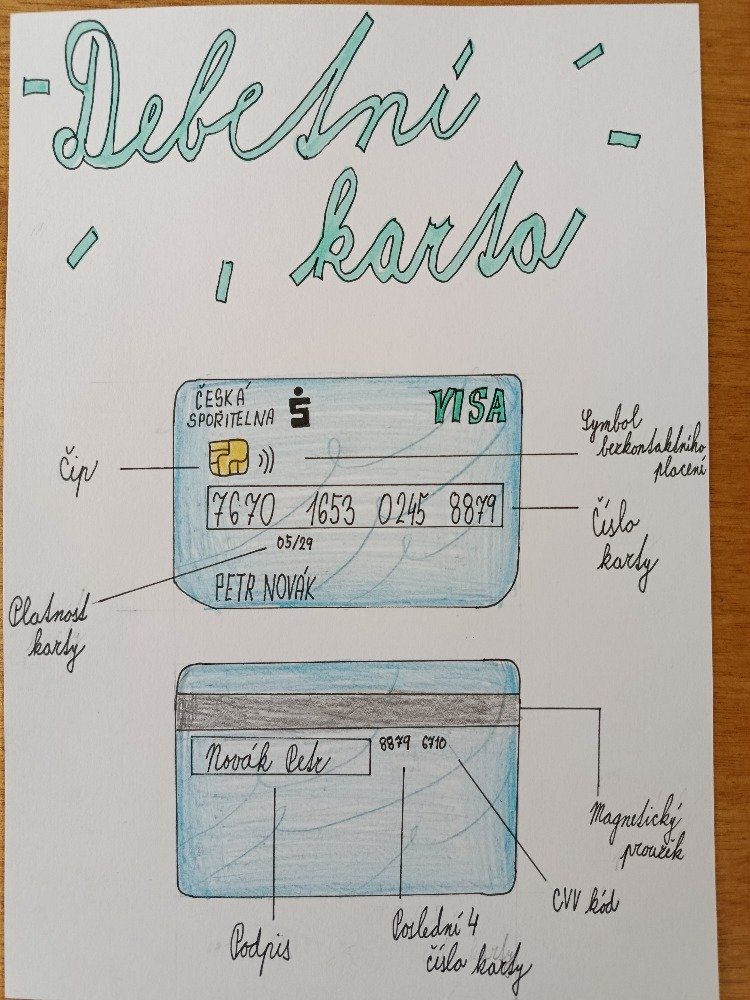 Debetní
karta
ČESKÁ
SPOŘITELNA
VISA
Symbol
bezkontaktního
placení
Čip
7670 1653 0245 8879
Číslo
karty
05/29
PETR NOVÁK
Platnost
karty
Novák Petr
8879 6710
Magnetický
proužek
CVV kód
Podpis
Poslední 4
čísla karty